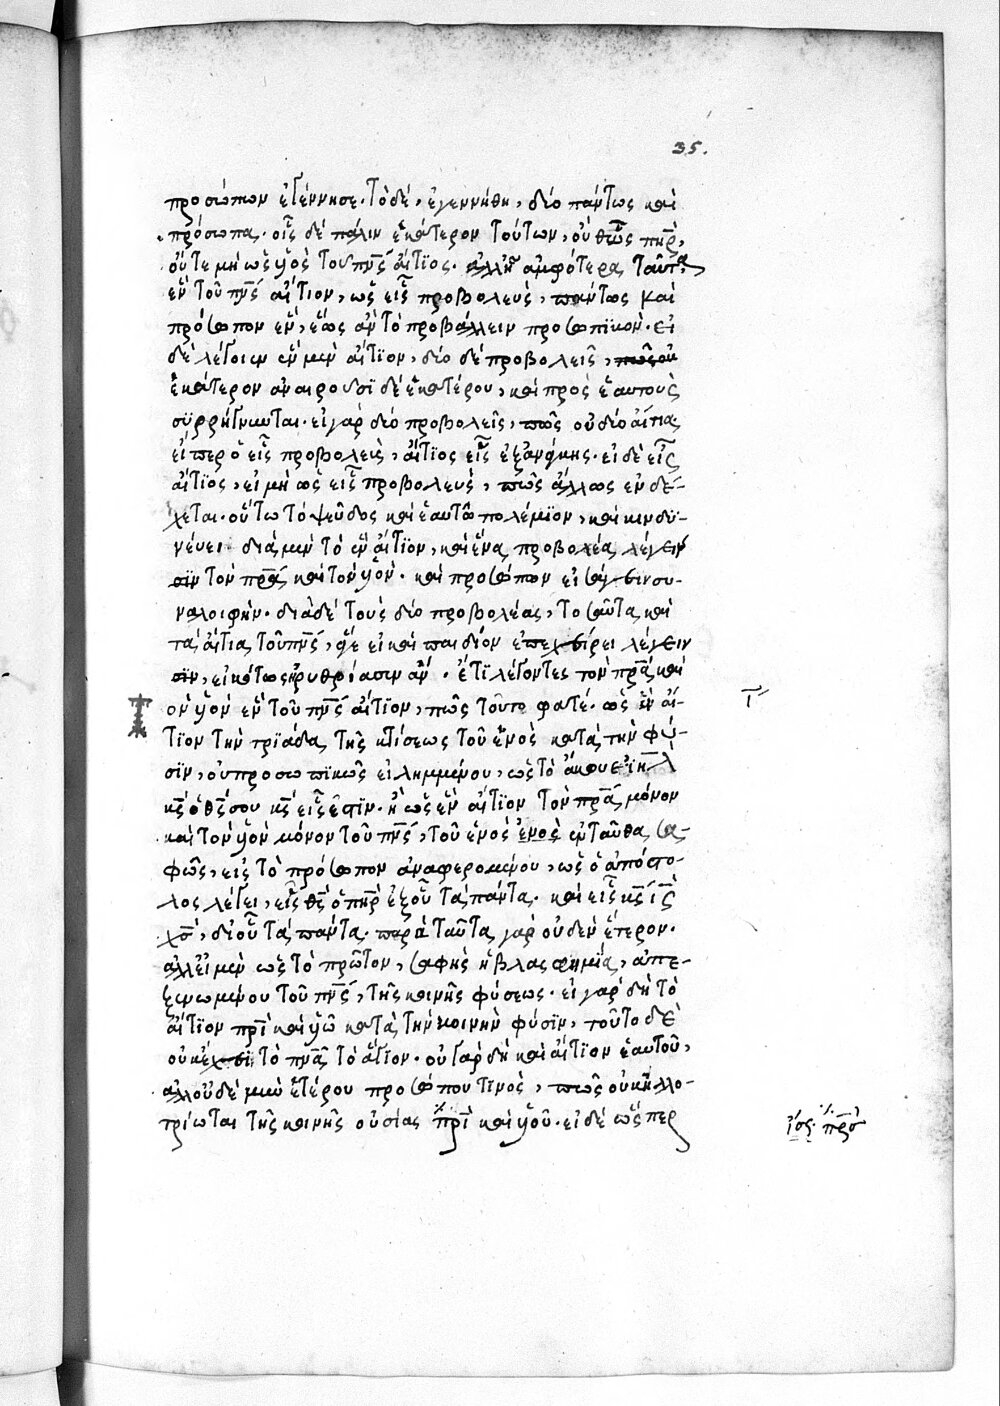 35.
προσώπων ἐγέννησε· τὸ δὲ, ἐγεννήθη, δύο πάντως καὶ
πρόσωπα. οἷς δὲ πάλιν ἑκάτερον τούτων, οὐθ ὡς πηρ,
οὔτε μὴ ὡς υος τοῦ πνς αἴτιος. ἀλλ' ἀμφότερα ταῦτα
ἓν τοῦ πνς αἴτιον, ὡς εἷς προβολεὺς, πάντως καὶ
πρόσωπον ἓν, ἕως ἂν τὸ προβάλλειν προσωπικὸν. εἰ
δὲ λέγοιεν ἓν μὲν αἴτιον, δύο δὲ προβολεῖς, πῶς οὐ
ἑκάτερον ἀναιροῦσι δὲ ἑκατέρου, καὶ πρὸς ἑαυτοὺς
συρρήγνυνται. εἰ γὰρ δύο προβολεῖς, πῶς οὐ δύο αἴτια,
εἴπερ ὁ εἷς προβολεὺς, αἴτιος εἷς ἐξανάγκης. εἰ δὲ εἷς
αἴτιος, εἰ μὴ ὡς εἷς προβολεὺς, πῶς ἄλλως ἐνδέ-
χεται. οὕτω τὸ ψεῦδος καὶ ἑαυτῶ πολέμιον, καὶ κινδυ-
νεύει. διὰ μὲν τὸ ἓν αἴτιον, καὶ ἕνα προβολέα λέγειν
τὸν πρα καὶ τὸν υον. καὶ προσώπων εἰσάγειν συ-
ναλοιφὴν. διὰ δὲ τοὺς δύο προβολέας, τοσαῦτα καὶ
τὰ αἴτια τοῦ πνς, εἰ καὶ παιδίον ἐπεχείρει λέγειν
εἰκότως ἠρυθρίασιν ἂν. ἔτι λέγοντες τὸν πρα καὶ
ὸν υον ἓν τοῦ πνς αἴτιον, πῶς τοῦτο φατέ. ὡς ἓν αἴ-
τιον τὴν τριάδα τῆς κτίσεως τοῦ ἑνὸς κατὰ τὴν φύ-
σιν, οὐ προσωπικῶς εἰλημμένου, ὡς τὸ ἄκουε ιηλ
κς ὁ θς σου κς εἷς ἐστὶν. ἢ ὡς ἓν αἴτιον τὸν πρα μόνον
καὶ τὸν υον μόνον τοῦ πνς, τοῦ ἑνὸς ἑνὸς ἐνταῦθα σα-
φῶς, εἰς τὸ πρόσωπον ἀναφερομένου, ὡς ὁ ἀπόστο-
λος λέγει, εἷς θς ὁ πηρ ἐξ οὗ τὰ πάντα. καὶ εἷς κς ις
χς, δι οὗ τὰ πάντα. παρὰ ταῦτα γὰρ οὐδὲν ἕτερον.
ἀλλ' εἰ μὲν ὡς τὸ πρῶτον, σαφὴς ἡ βλασφημία, ἀπε-
ξενωμένου τοῦ πνς, τῆς κοινῆς φύσεως. εἰ γὰρ δὴ τὸ
αἴτιον πρι καὶ υω κατὰ τὴν κοινὴν φύσιν, τοῦτο δὲ
οὐκ ἔχει τὸ πνα τὸ ἅγιον. οὐ γὰρ δὴ καὶ αἴτιον ἑαυτοῦ,
ἀλλ' οὐδὲ μὲν ἑτέρου προσώπου τινὸς, πῶς οὐκ ἠλλο-
τρίωται τῆς κοινῆς οὐσίας πρι καὶ υου. εἰ δὲ ὥσπερ